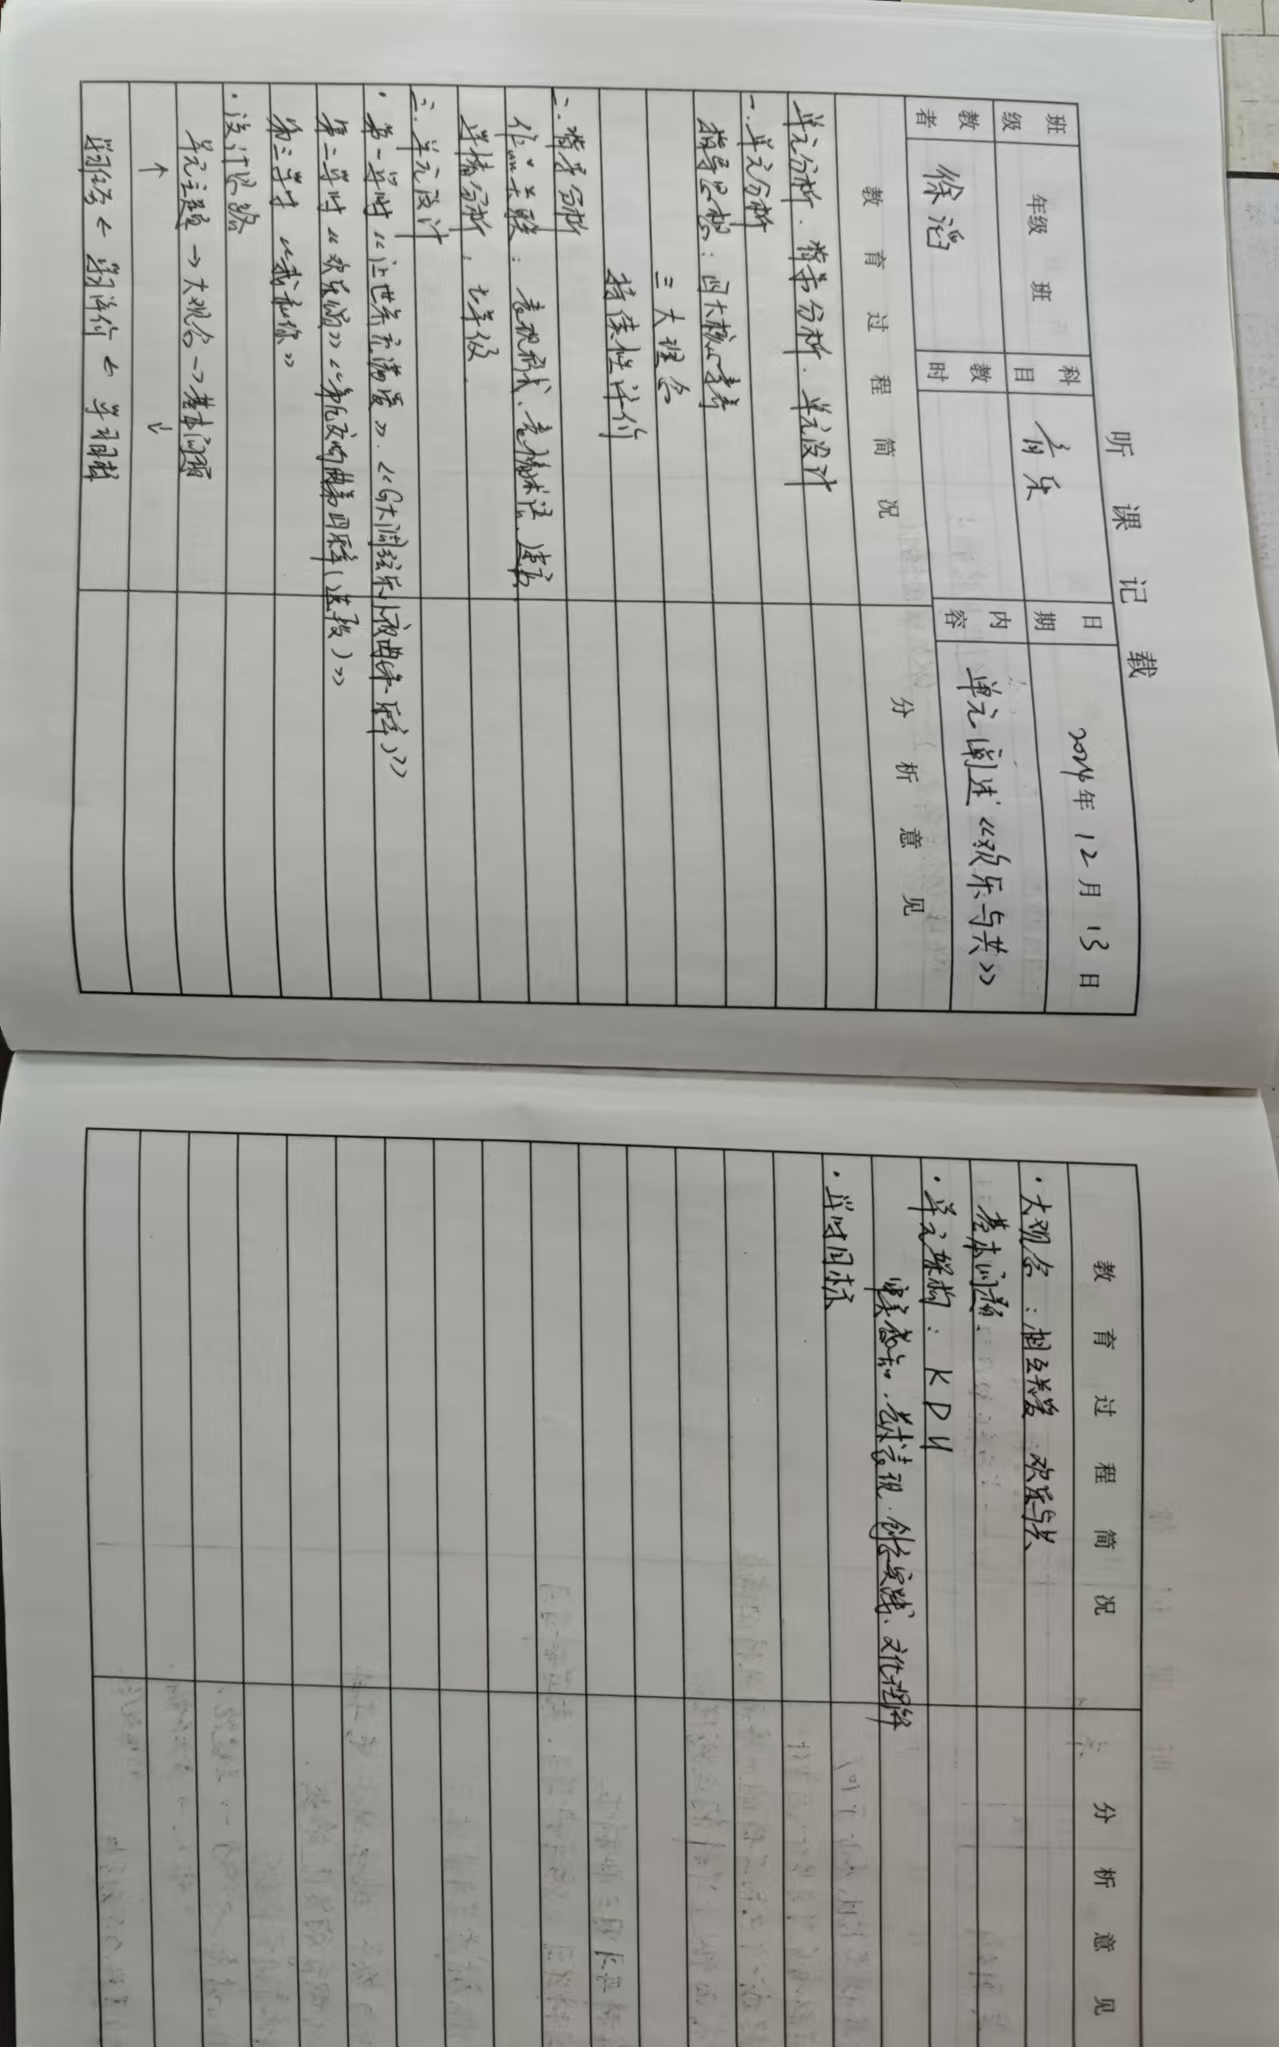 听课记载
班级 年级 班 科目 音乐 日期 2024年12月13日
教者 徐滔 教时 内容 单元阐述《欢乐与共》
教育过程简况 分析意见
单元分析、背景分析、单元设计
一.单元分析
指导思想：四大核心素养
三大理念
持续性评价
二、背景分析
作品关联：表现形式、表情术语、速度
学情分析：七年级
三.单元设计
·第一学时《让世界充满爱》.《G大调弦乐小夜曲(第一乐章)》
第二学时《欢乐颂》《第九交响曲第四乐章(选段)》
第三学时《我和你》
·设计思路
单元主题→大观念→基本问题
↑ ↓
学习任务← 学习评价← 学习目标
教育过程简况 分析意见
·大观念：相互关爱 欢乐与共
基本问题：
·单元架构：KDU
审美感知.艺术表现.创意实践、文化理解
·学时目标